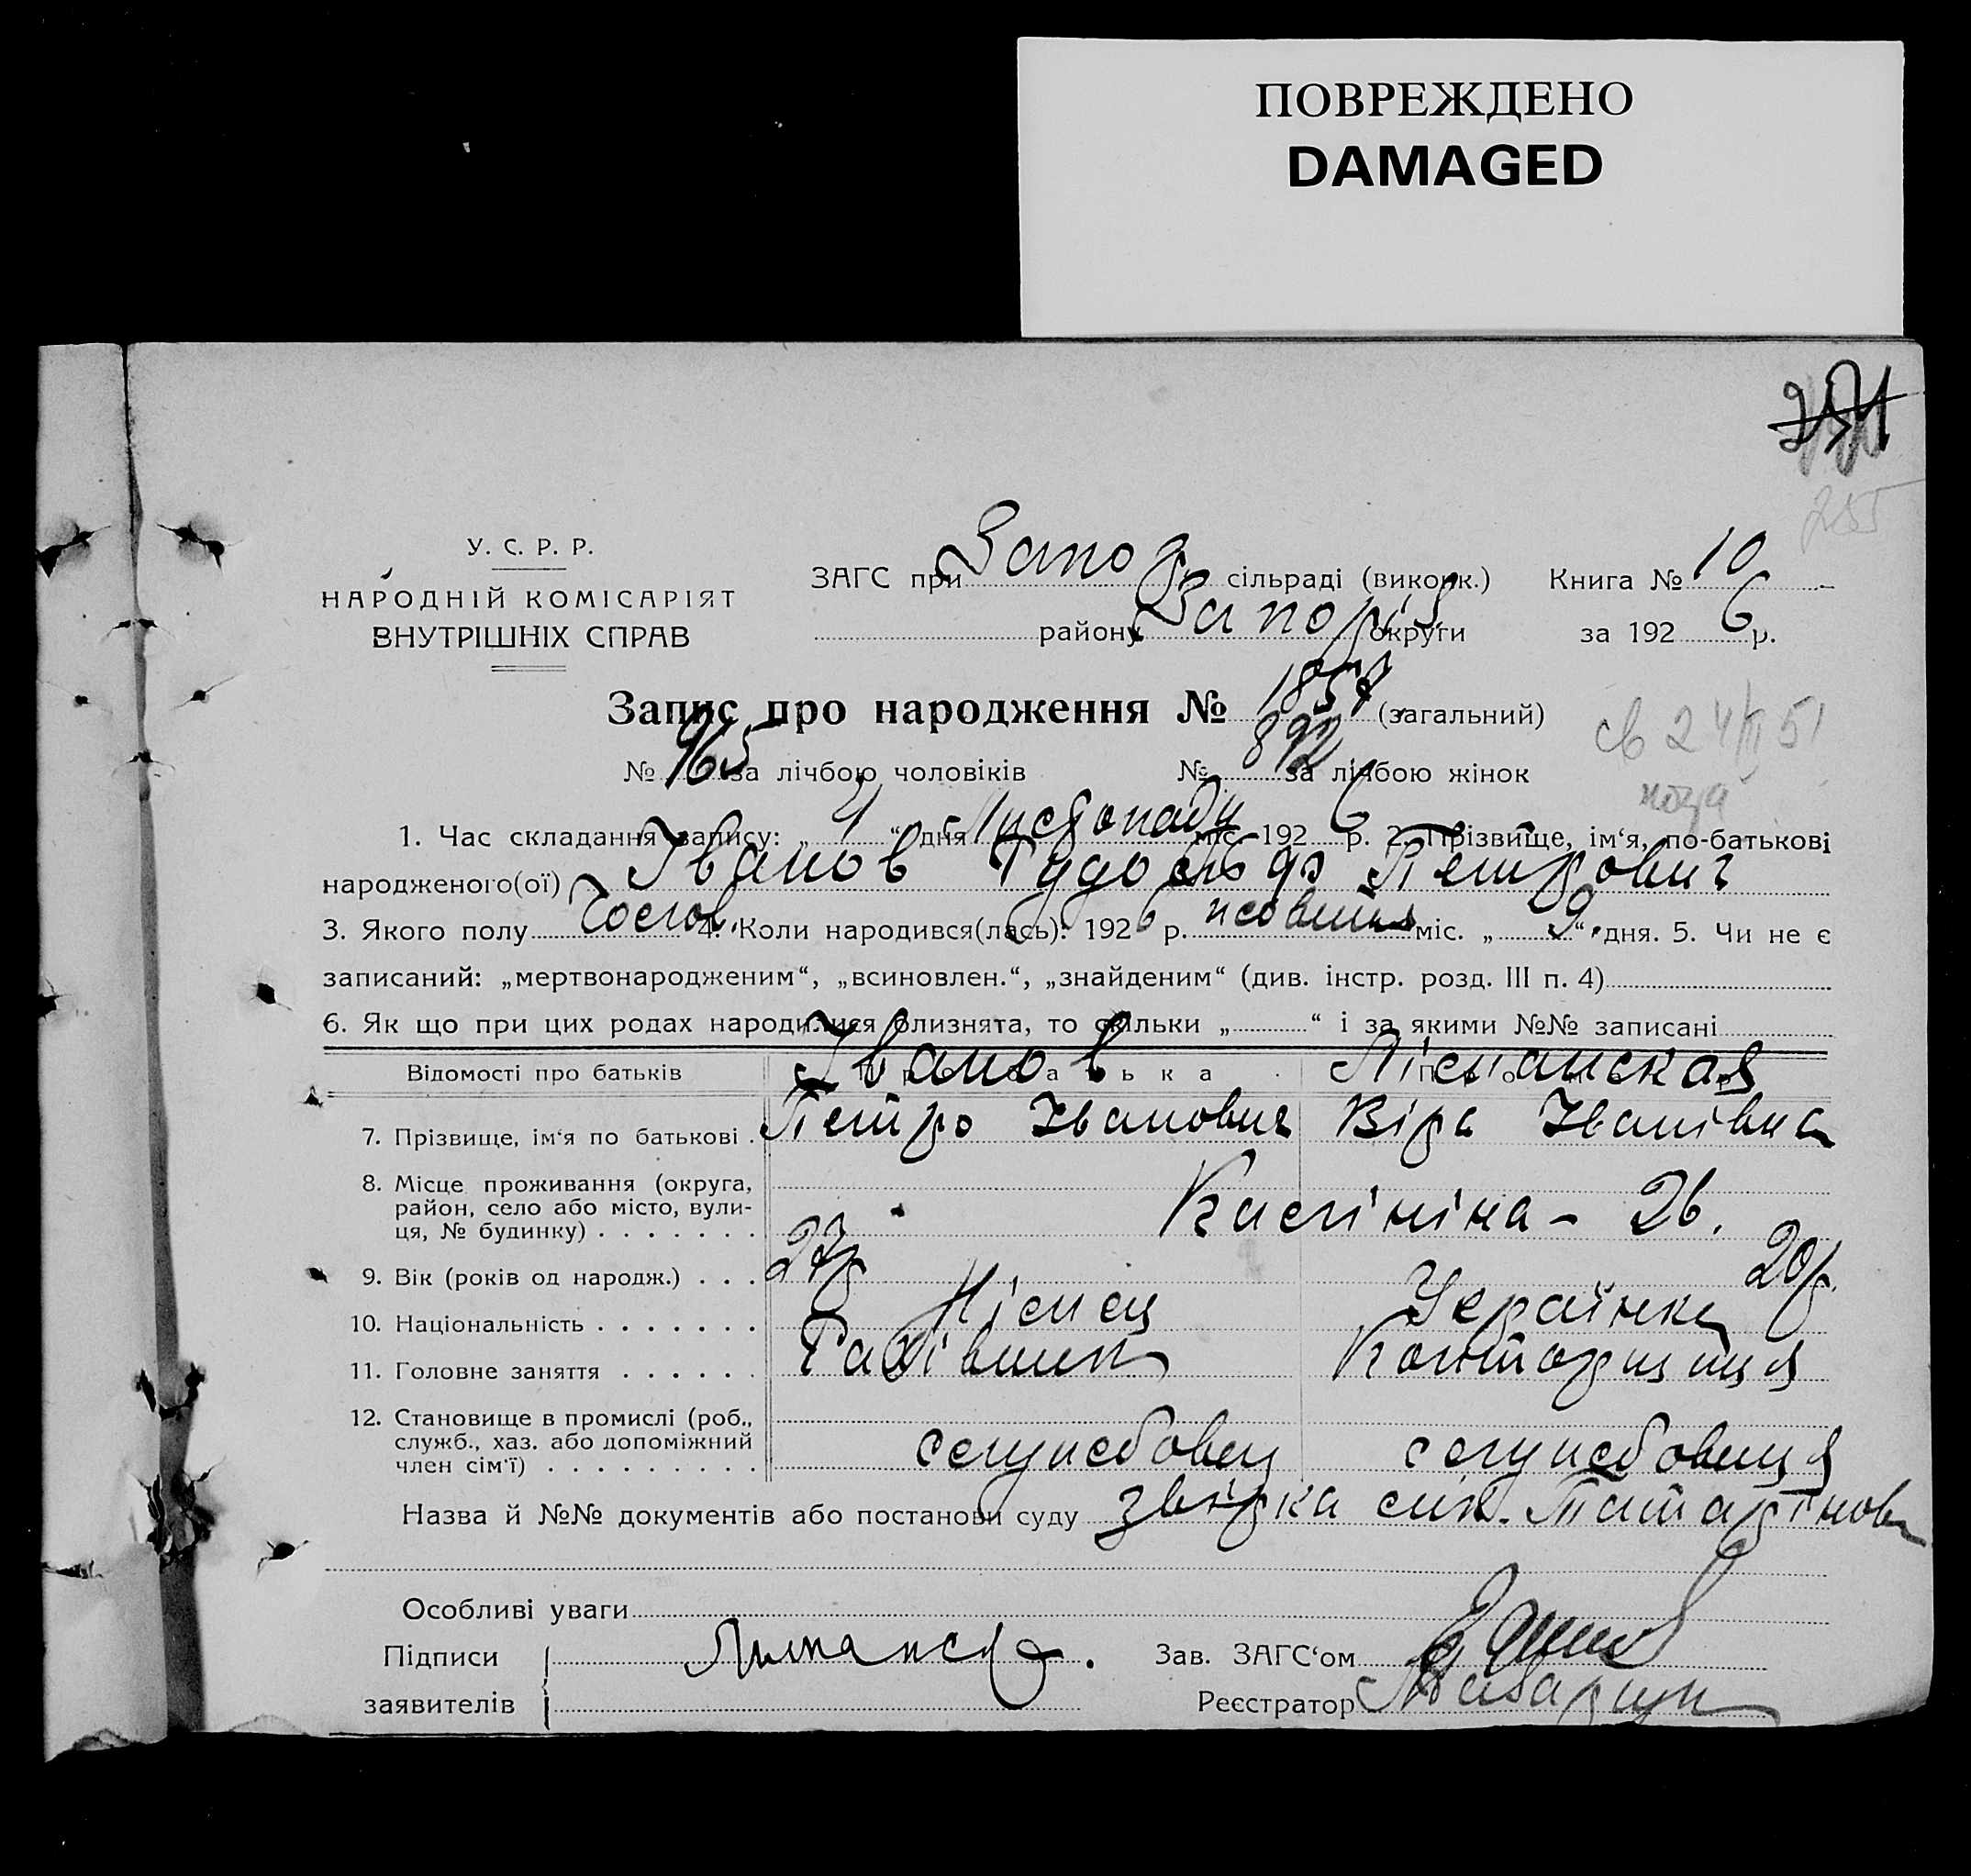 ПОВРЕЖДЕНО
DAMAGED
255
У. С. Р. Р.
НАРОДНІЙ КОМІСАРІЯТ
ВНУТРІШНІХ СПРАВ
ЗАГС при Запор. сільраді (виконк.) Книга № 10
району Запоріз. округи за 1926 р.
Запис про народження № 1857 (загальний)
№ 965 за лічбою чоловіків № 892 за лічбою жінок
св 24/II 51
1. Час складання запису: „4“ дня Листопаду міс. 1926 р. 2. Прізвище, ім‘я, по-батькові
народженого(ої) Іванов Рудольф Петрович
3. Якого полу Чолов. 4. Коли народився(лась): 1926 р. жовтня міс. „9“ дня. 5. Чи не є
записаний: „мертвонародженим“, „всиновлен.“, „знайденим“ (див. інстр. розд. III п. 4)
6. Як що при цих родах народилися близнята, то скільки „ “ і за якими №№ записані
Відомості про батьків Про батька Про матір
7. Прізвище, ім‘я по батькові . Іванов Петро Іванович Віра Іванівна
8. Місце проживання (округа,
район, село або місто, вули-
ця, № будинку) . . . . . . . Калініна – 26.
9. Вік (років од народж.) . . . 27р 20р.
10. Національність . . . . . . . Німец Українка
11. Головне заняття . . . . . . Рахівник Конторщиця
12. Становище в промислі (роб.,
служб., хаз. або допоміжний
член сім‘ї) . . . . . . . . . службовец службовиця
Назва й №№ документів або постанови суду звірка лік. Татарінова
Особливі уваги
Підписи
заявителів
Зав. ЗАГС‘ом
Реєстратор